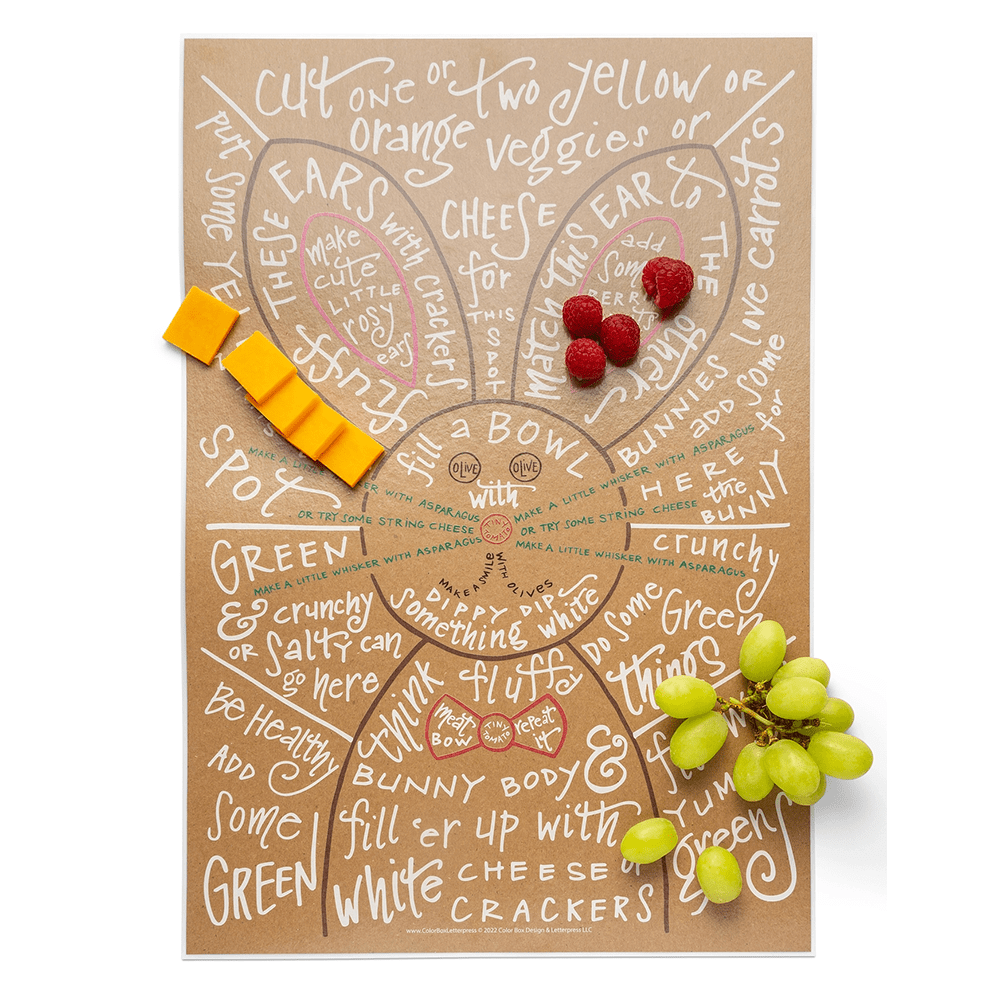 CUT ONE or Two yellow OR
Orange veggies or
CHEESE
for
THIS
SPOT
put some YEL
FLUFF
SPOT
THESE EARS with crackers
make
cute
LITTLE
rosy
ears
Match this EAR to THE
others
add
Som
BERR
BUNNIES love carrots
add some
HERE for
the
BUNNY
fill a BOWL
OLIVE OLIVE
with
MAKE A LITTLE WHISKER WITH ASPARAGUS
MAKE A LITTLE WHISKER WITH ASPARAGUS
OR TRY SOME STRING CHEESE
TINY
TOMATO
OR TRY SOME STRING CHEESE
MAKE A LITTLE WHISKER WITH ASPARAGUS
MAKE A LITTLE WHISKER WITH ASPARAGUS
MAKE A SMILE WITH OLIVES
DIPPY DIP
something white
GREEN
& crunchy
OR Salty can
go here
crunchy
Do Some Green
things
Be Healthy
ADD
Some
GREEN
think fluffy
meat
BOW
TINY
TOMATO
repeat
it
BUNNY BODY &
fill 'er up with
white CHEESE or
CRACKERS
YUM
Greens
www.ColorBoxLetterpress © 2022 Color Box Design & Letterpress LLC